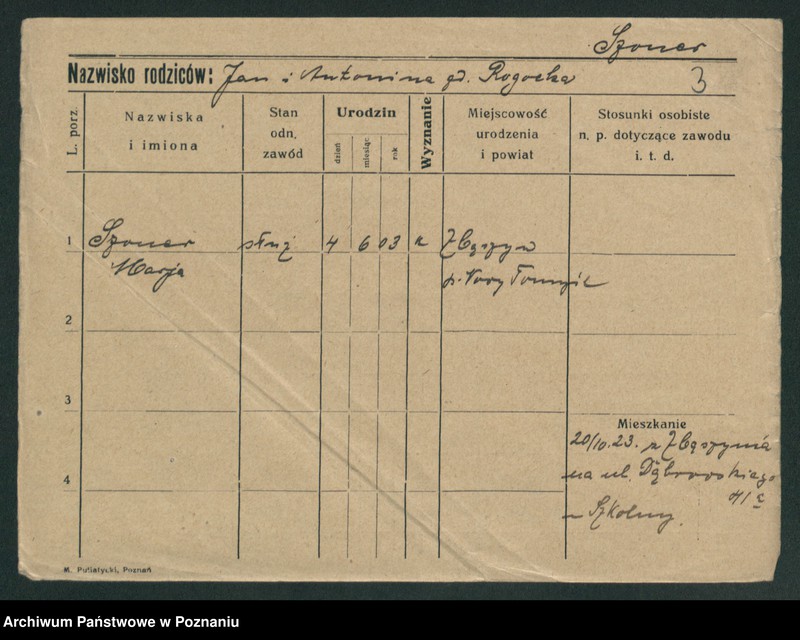 Szoner
Nazwisko rodziców: Jan i Antonina gd. Rogocka 3
L. porz.
Nazwiska
i imiona
Stan
odn,
zawód
Urodzin
dzień
miesiąc
rok
Wyznanie
Miejscowość
urodzenia
i powiat
Stosunki osobiste
n. p. dotyczące zawodu
i. t. d.
1 Szoner służ 4 6 03 k Zbąszyń
Marja p. Nowy Tomyśl
2
3
Mieszkanie
20/10.23. z Zbąszynia
4 na ul. Dąbrowskiego
41
Szkolny.
M. Putiatycki, Poznań
Archiwum Państwowe w Poznaniu